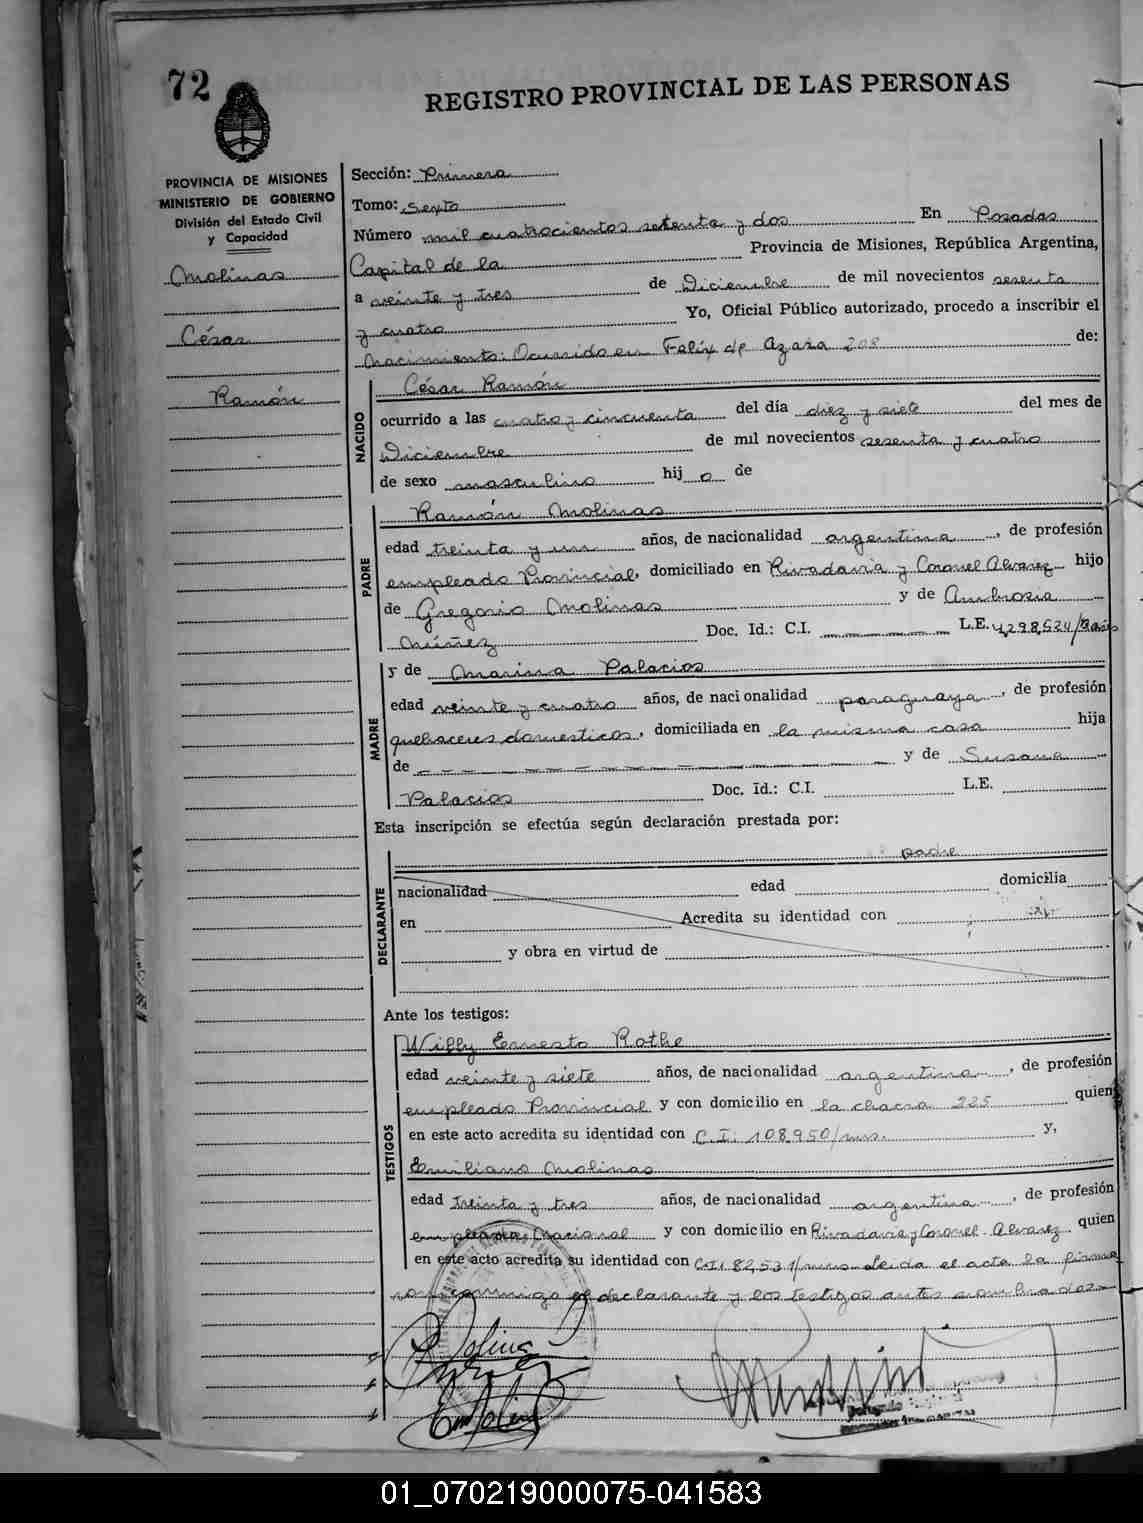 72
REGISTRO PROVINCIAL DE LAS PERSONAS
PROVINCIA DE MISIONES
MINISTERIO DE GOBIERNO
División del Estado Civil
y Capacidad
Molinas
César
Ramón
Sección: Primera
Tomo: Sexto
Número mil cuatrocientos setenta y dos En Posadas
Capital de la Provincia de Misiones, República Argentina,
a veinte y tres de Diciembre de mil novecientos sesenta
y cuatro Yo, Oficial Público autorizado, procedo a inscribir el
Nacimiento: Ocurrido en Felix de Azara 208 de:
NACIDO
César Ramón
ocurrido a las cuatro y cincuenta del día diez y siete del mes de
Diciembre de mil novecientos sesenta y cuatro
de sexo masculino hij o de
PADRE
Ramón Molinas
edad treinta y un años, de nacionalidad argentina, de profesión
empleado Provincial, domiciliado en Rivadavia y Coronel Alvarez hijo
de Gregorio Molinas y de Ambrosia
Núñez Doc. Id.: C.I. L.E. 4,298,524/
MADRE
y de Marina Palacios
edad veinte y cuatro años, de nacionalidad paraguaya, de profesión
quehaceres domesticos, domiciliada en la misma casa hija
de y de Susana
Palacios Doc. Id.: C.I. L.E.
Esta inscripción se efectúa según declaración prestada por:
DECLARANTE
padre
nacionalidad edad domicilia
en Acredita su identidad con
y obra en virtud de
Ante los testigos:
TESTIGOS
Willy Ernesto Rothe
edad veinte y siete años, de nacionalidad argentina, de profesión
empleado Provincial y con domicilio en la chacra 225 quien
en este acto acredita su identidad con C.I: 108,950/mns. y,
Emiliano Molinas
edad treinta y tres años, de nacionalidad argentina, de profesión
empleado Nacional y con domicilio en Rivadavia y Coronel Alvarez quien
en este acto acredita su identidad con C.I: 82,531/mns Leida el acta la firma
conmigo el declarante y los testigos antes nombrados
01_070219000075-041583